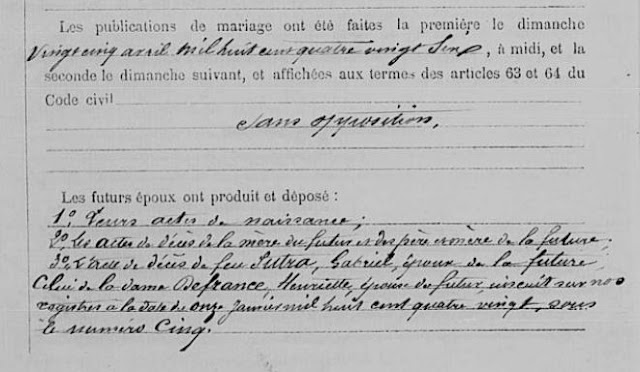 Les publications de mariage ont été faites la première le dimanche
Vingt cinq avril mil huit cent quatre vingt Six, à midi, et la
seconde le dimanche suivant, et affichées aux termes des articles 63 et 64 du
Code civil
Sans opposition.
Les futurs époux ont produit et déposé :
1° Leurs actes de naissance;
2° Les actes de décès de la mère du futur et des père et mère de la future.
3° L'acte de décès de feu Putra, Gabriel, époux de la future
Celui de la dame Defrance, Henriette, épouse du futur, inscrit sur nos
registres à la date du onze janvier mil huit cent quatre vingt, sous
le numéro Cinq.